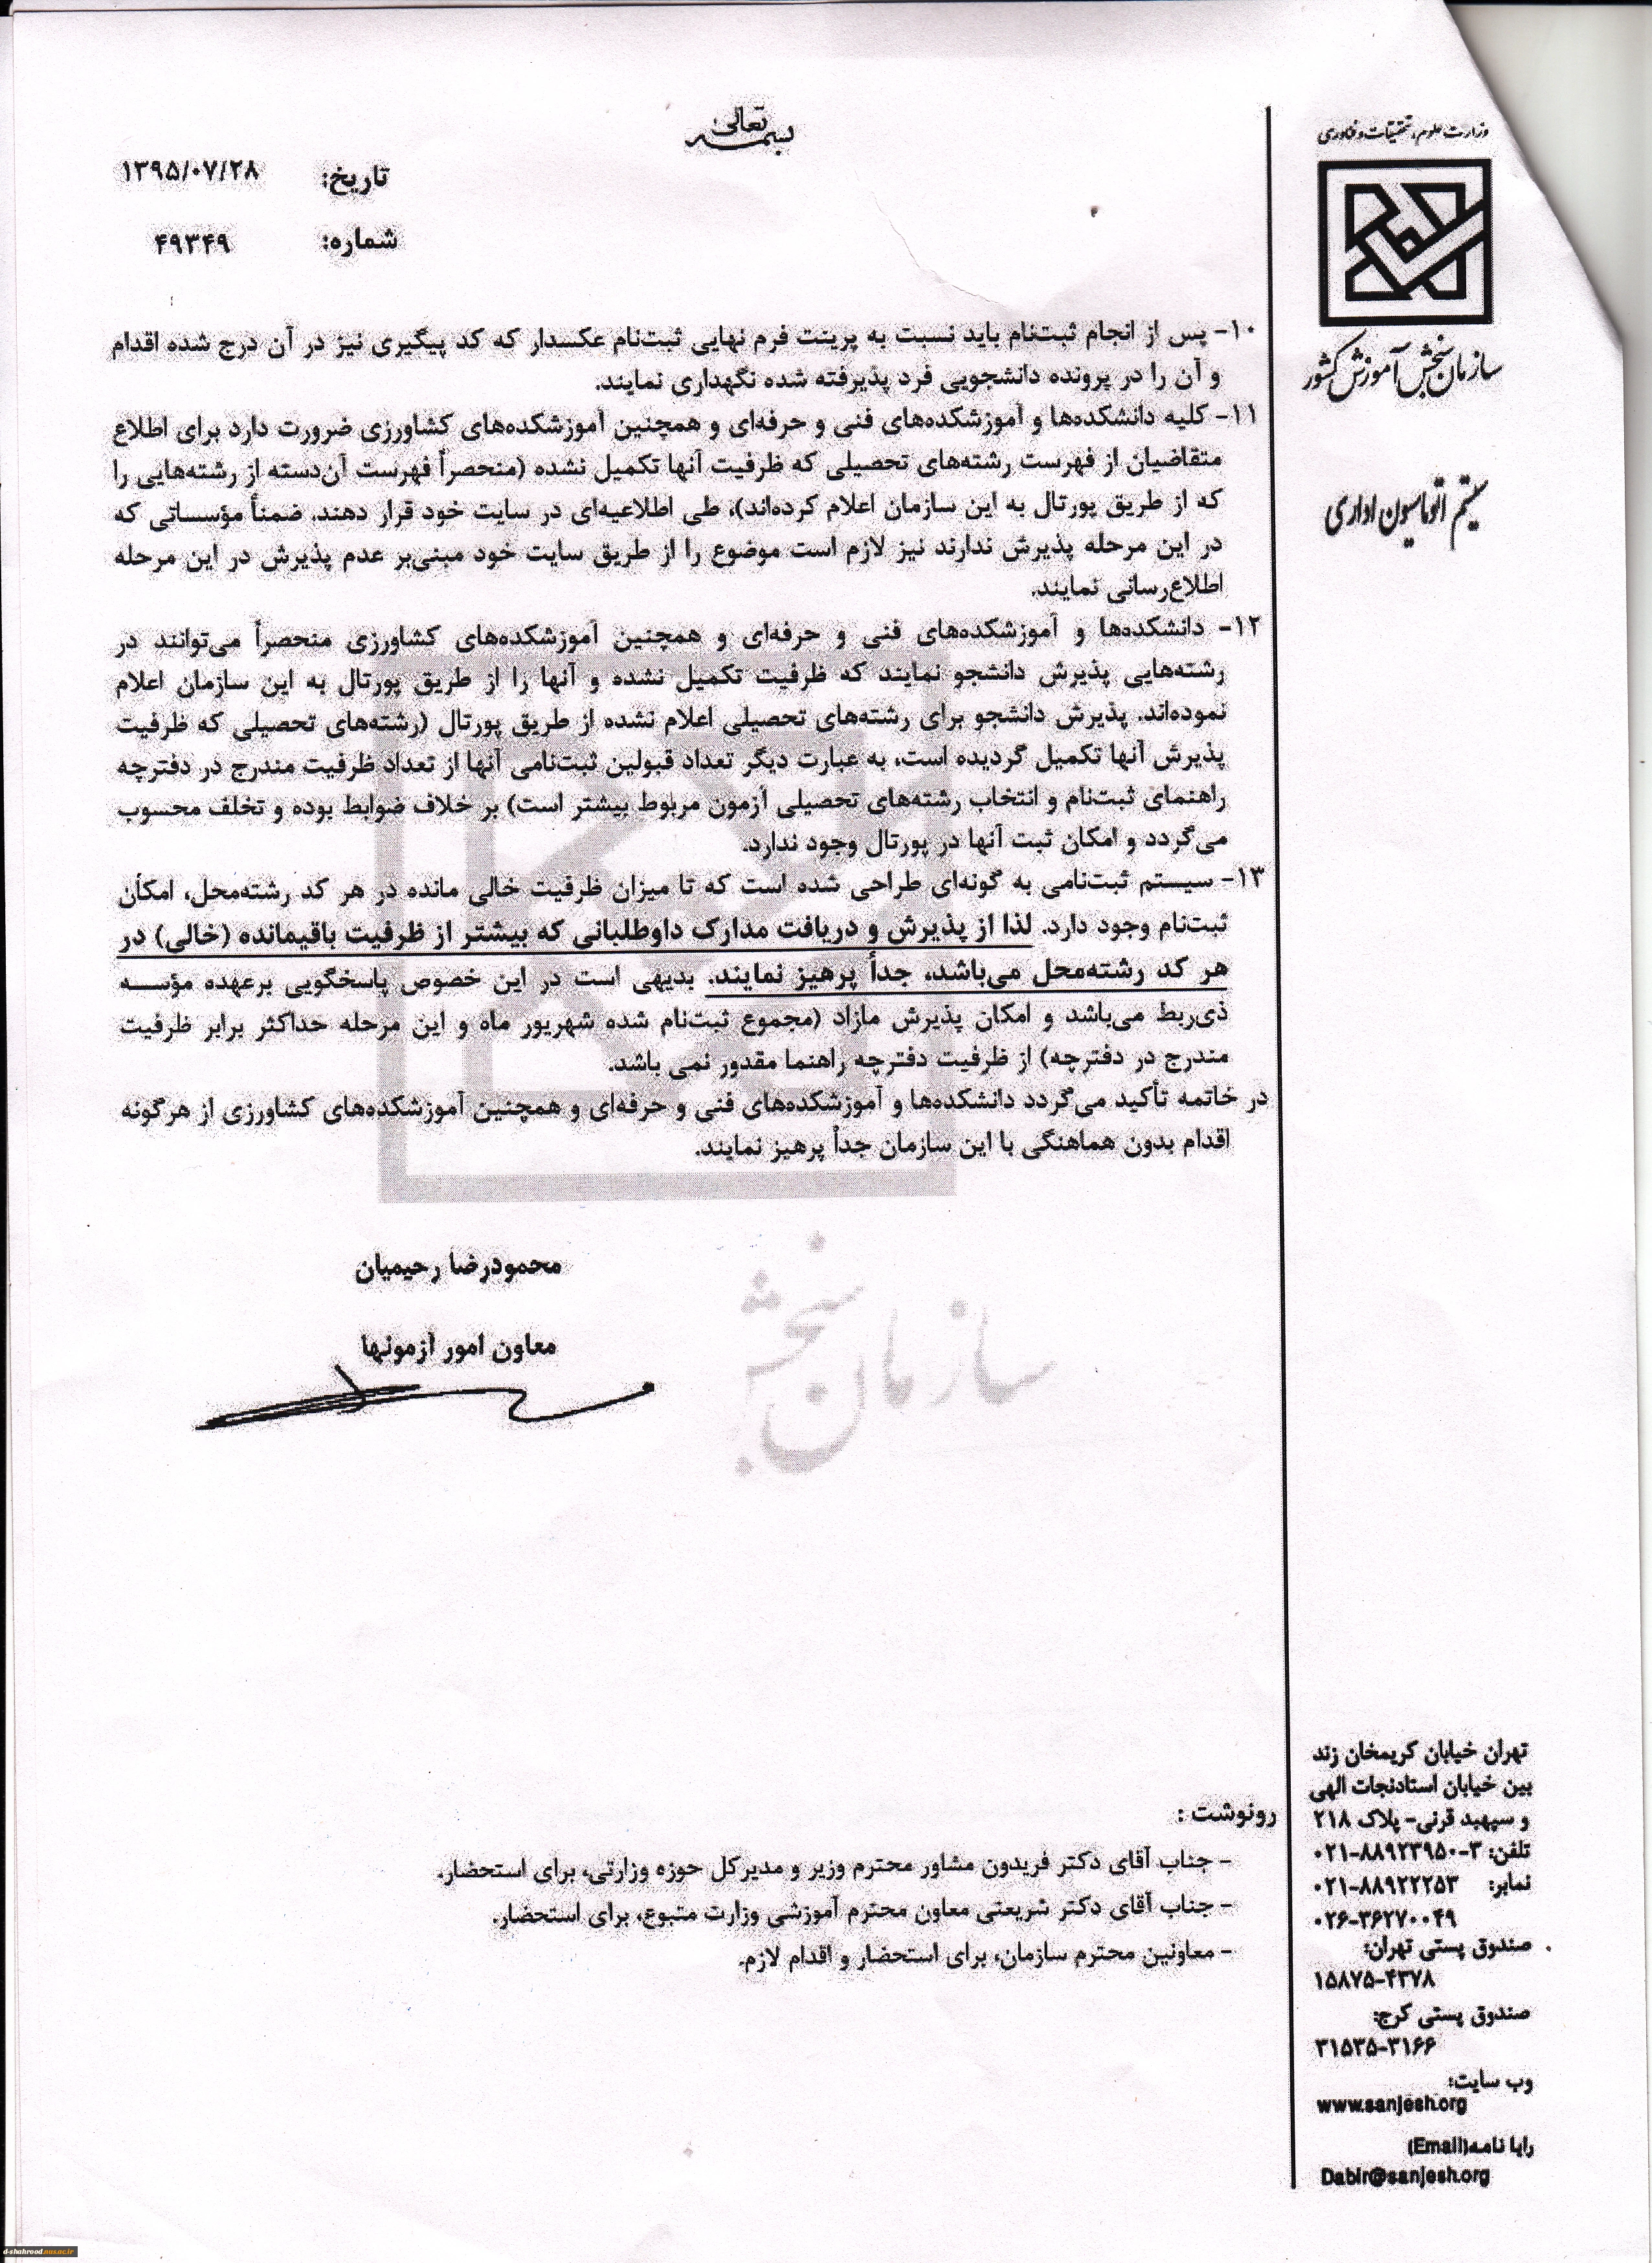 بسمه تعالی
تاریخ: ۱۳۹۵/۰۷/۲۸
شماره: ۴۹۳۴۹
وزارت علوم، تحقیقات و فناوری
سازمان سنجش آموزش کشور
سیستم اتوماسیون اداری
۱۰- پس از انجام ثبت‌نام باید نسبت به پرینت فرم نهایی ثبت‌نام عکسدار که کد پیگیری نیز در آن درج شده اقدام
و آن را در پرونده دانشجویی فرد پذیرفته شده نگهداری نمایند.
۱۱- کلیه دانشکده‌ها و آموزشکده‌های فنی و حرفه‌ای و همچنین آموزشکده‌های کشاورزی ضرورت دارد برای اطلاع
متقاضیان از فهرست رشته‌های تحصیلی که ظرفیت آنها تکمیل نشده (منحصراً فهرست آن‌دسته از رشته‌هایی را
که از طریق پورتال به این سازمان اعلام کرده‌اند)، طی اطلاعیه‌ای در سایت خود قرار دهند. ضمناً مؤسساتی که
در این مرحله پذیرش ندارند نیز لازم است موضوع را از طریق سایت خود مبنی‌بر عدم پذیرش در این مرحله
اطلاع‌رسانی نمایند.
۱۲- دانشکده‌ها و آموزشکده‌های فنی و حرفه‌ای و همچنین آموزشکده‌های کشاورزی منحصراً می‌توانند در
رشته‌هایی پذیرش دانشجو نمایند که ظرفیت تکمیل نشده و آنها را از طریق پورتال به این سازمان اعلام
نموده‌اند. پذیرش دانشجو برای رشته‌های تحصیلی اعلام نشده از طریق پورتال (رشته‌های تحصیلی که ظرفیت
پذیرش آنها تکمیل گردیده است، به عبارت دیگر تعداد قبولین ثبت‌نامی آنها از تعداد ظرفیت مندرج در دفترچه
راهنمای ثبت‌نام و انتخاب رشته‌های تحصیلی آزمون مربوط بیشتر است) بر خلاف ضوابط بوده و تخلف محسوب
می‌گردد و امکان ثبت آنها در پورتال وجود ندارد.
۱۳- سیستم ثبت‌نامی به گونه‌ای طراحی شده است که تا میزان ظرفیت خالی مانده در هر کد رشته‌محل، امکان
ثبت‌نام وجود دارد. لذا از پذیرش و دریافت مدارک داوطلبانی که بیشتر از ظرفیت باقیمانده (خالی) در
هر کد رشته‌محل می‌باشد، جداً پرهیز نمایند. بدیهی است در این خصوص پاسخگویی برعهده مؤسسه
ذی‌ربط می‌باشد و امکان پذیرش مازاد (مجموع ثبت‌نام شده شهریور ماه و این مرحله حداکثر برابر ظرفیت
مندرج در دفترچه) از ظرفیت دفترچه راهنما مقدور نمی باشد.
در خاتمه تأکید می‌گردد دانشکده‌ها و آموزشکده‌های فنی و حرفه‌ای و همچنین آموزشکده‌های کشاورزی از هرگونه
اقدام بدون هماهنگی با این سازمان جداً پرهیز نمایند.
محمودرضا رحیمیان
معاون امور آزمونها
سازمان سنجش
رونوشت :
- جناب آقای دکتر فریدون مشاور محترم وزیر و مدیرکل حوزه وزارتی، برای استحضار.
- جناب آقای دکتر شریعتی معاون محترم آموزشی وزارت متبوع، برای استحضار.
- معاونین محترم سازمان، برای استحضار و اقدام لازم.
تهران خیابان کریمخان زند
بین خیابان استادنجات الهی
و سپهبد قرنی- پلاک ۲۱۸
تلفن: ۳-۸۸۹۲۳۹۵۰-۰۲۱
نمابر: ۸۸۹۲۲۲۵۳-۰۲۱
۰۲۶-۳۶۲۷۰۰۴۹
صندوق پستی تهران:
۱۵۸۷۵-۴۳۷۸
صندوق پستی کرج:
۳۱۵۳۵-۳۱۶۶
وب سایت:
www.sanjesh.org
رایا نامه(Email)
Dabir@sanjesh.org
d-shahrood.nus.ac.ir